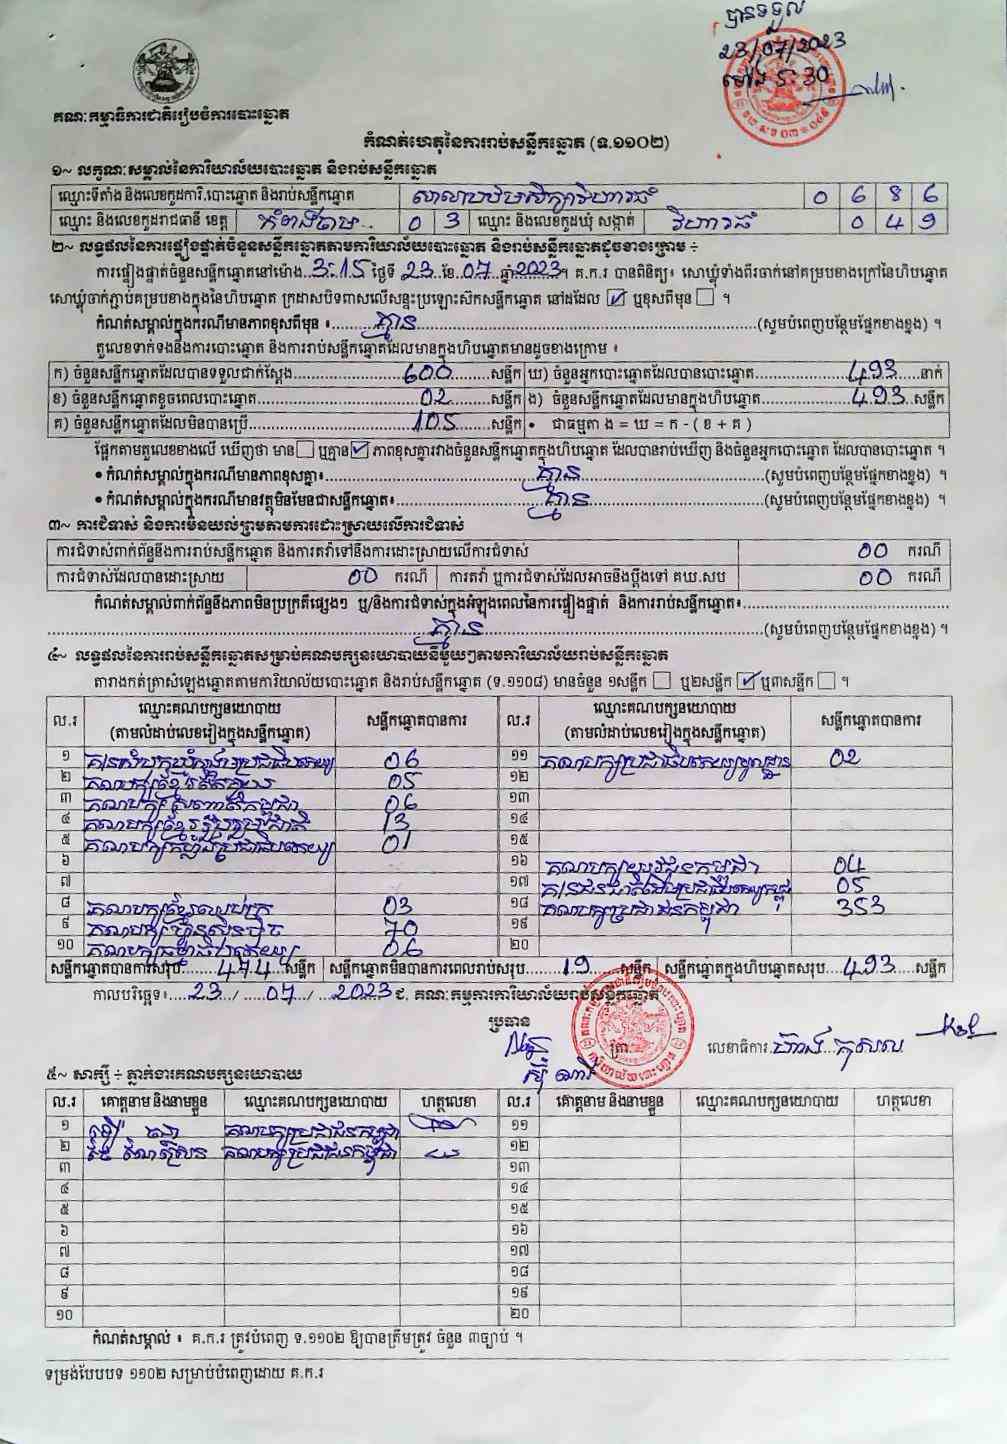 បានទទួល
23/07/2023
ម៉ោង ៩:30
គណៈកម្មាធិការជាតិរៀបចំការបោះឆ្នោត
កំណត់ហេតុនៃការរាប់សន្លឹកឆ្នោត (ទ.១១០២)
១~ លក្ខណៈសម្គាល់នៃការិយាល័យបោះឆ្នោត និងរាប់សន្លឹកឆ្នោត
ឈ្មោះទីតាំង និងលេខកូដការិ.បោះឆ្នោត និងរាប់សន្លឹកឆ្នោត សាលាបឋមសិក្សាវិហារធំ 0 6 8 6
ឈ្មោះ និងលេខកូដរាជធានី ខេត្ត កំពង់ចាម 0 3 ឈ្មោះ និងលេខកូដឃុំ សង្កាត់ វិហារធំ 0 4 9
២~ លទ្ធផលនៃការផ្ទៀងផ្ទាត់ចំនួនសន្លឹកឆ្នោតតាមការិយាល័យបោះឆ្នោត និងរាប់សន្លឹកឆ្នោតដូចខាងក្រោម ÷
ការផ្ទៀងផ្ទាត់ចំនួនសន្លឹកឆ្នោតនៅម៉ោង 3:15 ថ្ងៃទី 23 ខែ 07 ឆ្នាំ 2023 ។ គ.ក.រ បានពិនិត្យ៖ សោឃ្លុំទាំងពីរចាក់នៅគម្របខាងក្រៅនៃហិបឆ្នោត
សោឃ្លុំចាក់ភ្ជាប់គម្របខាងក្នុងនៃហិបឆ្នោត ក្រដាសបិទពាសលើសន្ទះប្រឡោះស៊កសន្លឹកឆ្នោត នៅដដែល ☑ ឬខុសពីមុន ☐ ។
កំណត់សម្គាល់ក្នុងករណីមានភាពខុសពីមុន ៖ គ្មាន (សូមបំពេញបន្ថែមផ្នែកខាងខ្នង) ។
តួលេខទាក់ទងនឹងការបោះឆ្នោត និងការរាប់សន្លឹកឆ្នោតដែលមានក្នុងហិបឆ្នោតមានដូចខាងក្រោម ៖
ក) ចំនួនសន្លឹកឆ្នោតដែលបានទទួលជាក់ស្តែង 600 សន្លឹក ឃ) ចំនួនអ្នកបោះឆ្នោតដែលបានបោះឆ្នោត 493 នាក់
ខ) ចំនួនសន្លឹកឆ្នោតខូចពេលបោះឆ្នោត 02 សន្លឹក ង) ចំនួនសន្លឹកឆ្នោតដែលមានក្នុងហិបឆ្នោត 493 សន្លឹក
គ) ចំនួនសន្លឹកឆ្នោតដែលមិនបានប្រើ 105 សន្លឹក • ជាធម្មតា ង = ឃ = ក - ( ខ + គ )
ផ្អែកតាមតួលេខខាងលើ ឃើញថា មាន ☐ ឬគ្មាន ☑ ភាពខុសគ្នារវាងចំនួនសន្លឹកឆ្នោតក្នុងហិបឆ្នោត ដែលបានរាប់ឃើញ និងចំនួនអ្នកបោះឆ្នោត ដែលបានបោះឆ្នោត ។
• កំណត់សម្គាល់ក្នុងករណីមានភាពខុសគ្នា៖ គ្មាន (សូមបំពេញបន្ថែមផ្នែកខាងខ្នង) ។
• កំណត់សម្គាល់ក្នុងករណីមានវត្ថុមិនមែនជាសន្លឹកឆ្នោត៖ គ្មាន (សូមបំពេញបន្ថែមផ្នែកខាងខ្នង) ។
៣~ ការជំទាស់ និងការមិនយល់ព្រមតាមការដោះស្រាយលើការជំទាស់
ការជំទាស់ពាក់ព័ន្ធនឹងការរាប់សន្លឹកឆ្នោត និងការតវ៉ាទៅនឹងការដោះស្រាយលើការជំទាស់ 00 ករណី
ការជំទាស់ដែលបានដោះស្រាយ 00 ករណី ការតវ៉ា ឬការជំទាស់ដែលអាចនឹងប្តឹងទៅ គឃ.សប 00 ករណី
កំណត់សម្គាល់ពាក់ព័ន្ធនឹងភាពមិនប្រក្រតីផ្សេងៗ ឬ/និងការជំទាស់ក្នុងអំឡុងពេលនៃការផ្ទៀងផ្ទាត់ និងការរាប់សន្លឹកឆ្នោត៖
គ្មាន (សូមបំពេញបន្ថែមផ្នែកខាងខ្នង) ។
៤~ លទ្ធផលនៃការរាប់សន្លឹកឆ្នោតសម្រាប់គណបក្សនយោបាយនីមួយៗតាមការិយាល័យរាប់សន្លឹកឆ្នោត
តារាងកត់ត្រាសំឡេងឆ្នោតតាមការិយាល័យបោះឆ្នោត និងរាប់សន្លឹកឆ្នោត (ទ.១១០៨) មានចំនួន ១សន្លឹក ☐ ឬ២សន្លឹក ☑ ឬ៣សន្លឹក ☐ ។
ល.រ ឈ្មោះគណបក្សនយោបាយ (តាមលំដាប់លេខរៀងក្នុងសន្លឹកឆ្នោត) សន្លឹកឆ្នោតបានការ ល.រ ឈ្មោះគណបក្សនយោបាយ (តាមលំដាប់លេខរៀងក្នុងសន្លឹកឆ្នោត) សន្លឹកឆ្នោតបានការ
១ គ/នសំបុកឃ្មុំសង្គមប្រជាធិបតេយ្យ 06 ១១ គណបក្សប្រជាធិបតេយ្យមូលដ្ឋាន 02
២ គណបក្សខ្មែរតែមួយ 05 ១២
៣ គណបក្សស្រុកជាតិកម្ពុជា 06 ១៣
៤ គណបក្សខ្មែររួបរួមជាតិ 13 ១៤
៥ គណបក្សកម្លាំងប្រជាធិបតេយ្យ 01 ១៥
៦ ១៦ គណបក្សយុវជនកម្ពុជា 04
៧ ១៧ គ/នជនជាតិដើមប្រជាធិបតេយ្យកម្ពុជា 05
៨ គណបក្សខ្មែរឈប់ក្រ 03 ១៨ គណបក្សប្រជាជនកម្ពុជា 353
៩ គណបក្សហ៊្វុនស៊ិនប៉ិច 70 ១៩
១០ គណបក្សធម្មាធិបតេយ្យ 06 ២០
សន្លឹកឆ្នោតបានការសរុប 474 សន្លឹក សន្លឹកឆ្នោតមិនបានការពេលរាប់សរុប 19 សន្លឹក សន្លឹកឆ្នោតក្នុងហិបឆ្នោតសរុប 493 សន្លឹក
កាលបរិច្ឆេទ៖ 23 / 07 / 2023 ជ. គណៈកម្មការការិយាល័យរាប់សន្លឹកឆ្នោត
ប្រធាន
ត្រា លេខាធិការ ហ៊ាង កុសល
ស៊ុំ ណារី
៥~ សាក្សី ÷ ភ្នាក់ងារគណបក្សនយោបាយ
ល.រ គោត្តនាម និងនាមខ្លួន ឈ្មោះគណបក្សនយោបាយ ហត្ថលេខា ល.រ គោត្តនាម និងនាមខ្លួន ឈ្មោះគណបក្សនយោបាយ ហត្ថលេខា
១ គណបក្សប្រជាជនកម្ពុជា ១១
២ គណបក្សប្រជាជនកម្ពុជា ១២
៣ ១៣
៤ ១៤
៥ ១៥
៦ ១៦
៧ ១៧
៨ ១៨
៩ ១៩
១០ ២០
កំណត់សម្គាល់ ៖ គ.ក.រ ត្រូវបំពេញ ទ.១១០២ ឱ្យបានត្រឹមត្រូវ ចំនួន ៣ច្បាប់ ។
ទម្រង់បែបបទ ១១០២ សម្រាប់បំពេញដោយ គ.ក.រ